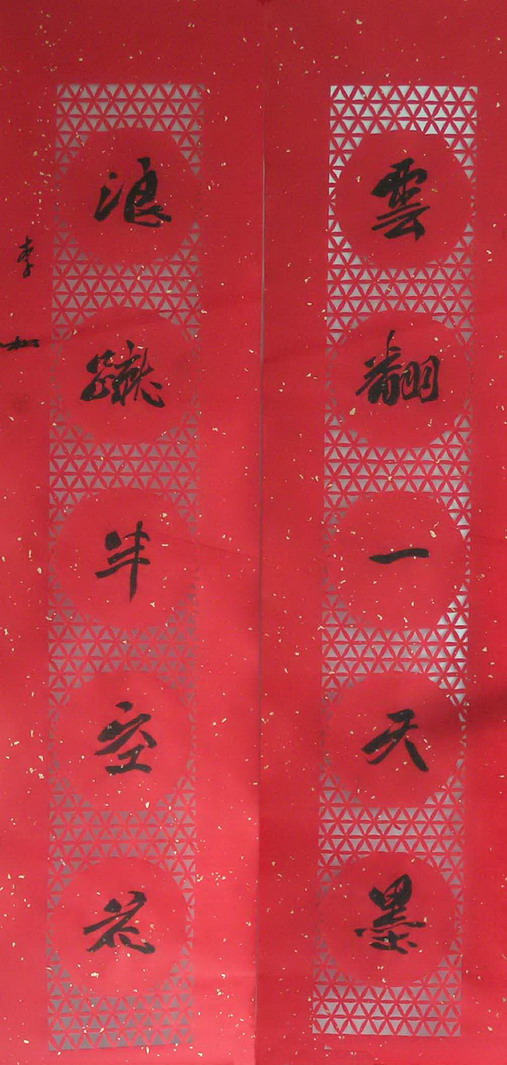 雲翻一天墨
浪蹴半空花
李